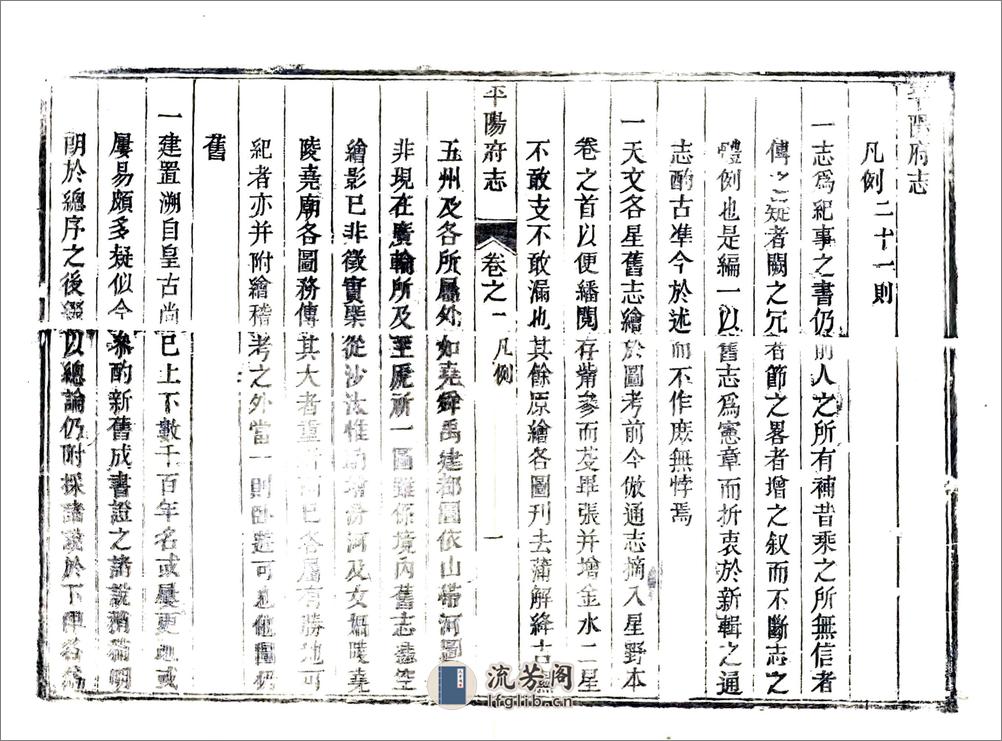 平陽府志
凡例二十一則
一志爲紀事之書仍前人之所有補昔乘之所無信者
傳之疑者闕之冗者節之畧者增之叙而不斷志之
體例也是編一以舊志爲憲章而折衷於新輯之通
志酌古準今於述而不作庶無悖焉
一天文各星舊志繪於圖考前今倣通志摘入星野本
卷之首以便繙閱存觜參而芟畢張并增金水二星
不敢支不敢漏也其餘原繪各圖刊去蒲解絳吉隰
平陽府志
卷之
凡例
一
五州及各所屬外如堯舜禹建都圖依山帶河圖
非現在廣輪所及至厫所一圖雖係境內舊志憑空
繪影已非徵實槩從沙汰惟 增汾河及女媧陵堯
陵堯廟各圖務傳其大者重 而已各屬有勝地可
紀者亦并附繪稽考之外當一則臥遊可也他圖仍
舊
一建置溯自皇古尚已上下數千百年名或屢更地或
屢易頗多疑似今叅酌新舊成書證之諸說 明
朗於總序之後綴以總論仍附採諸說於下 各
流芳阁
lfglib.cn